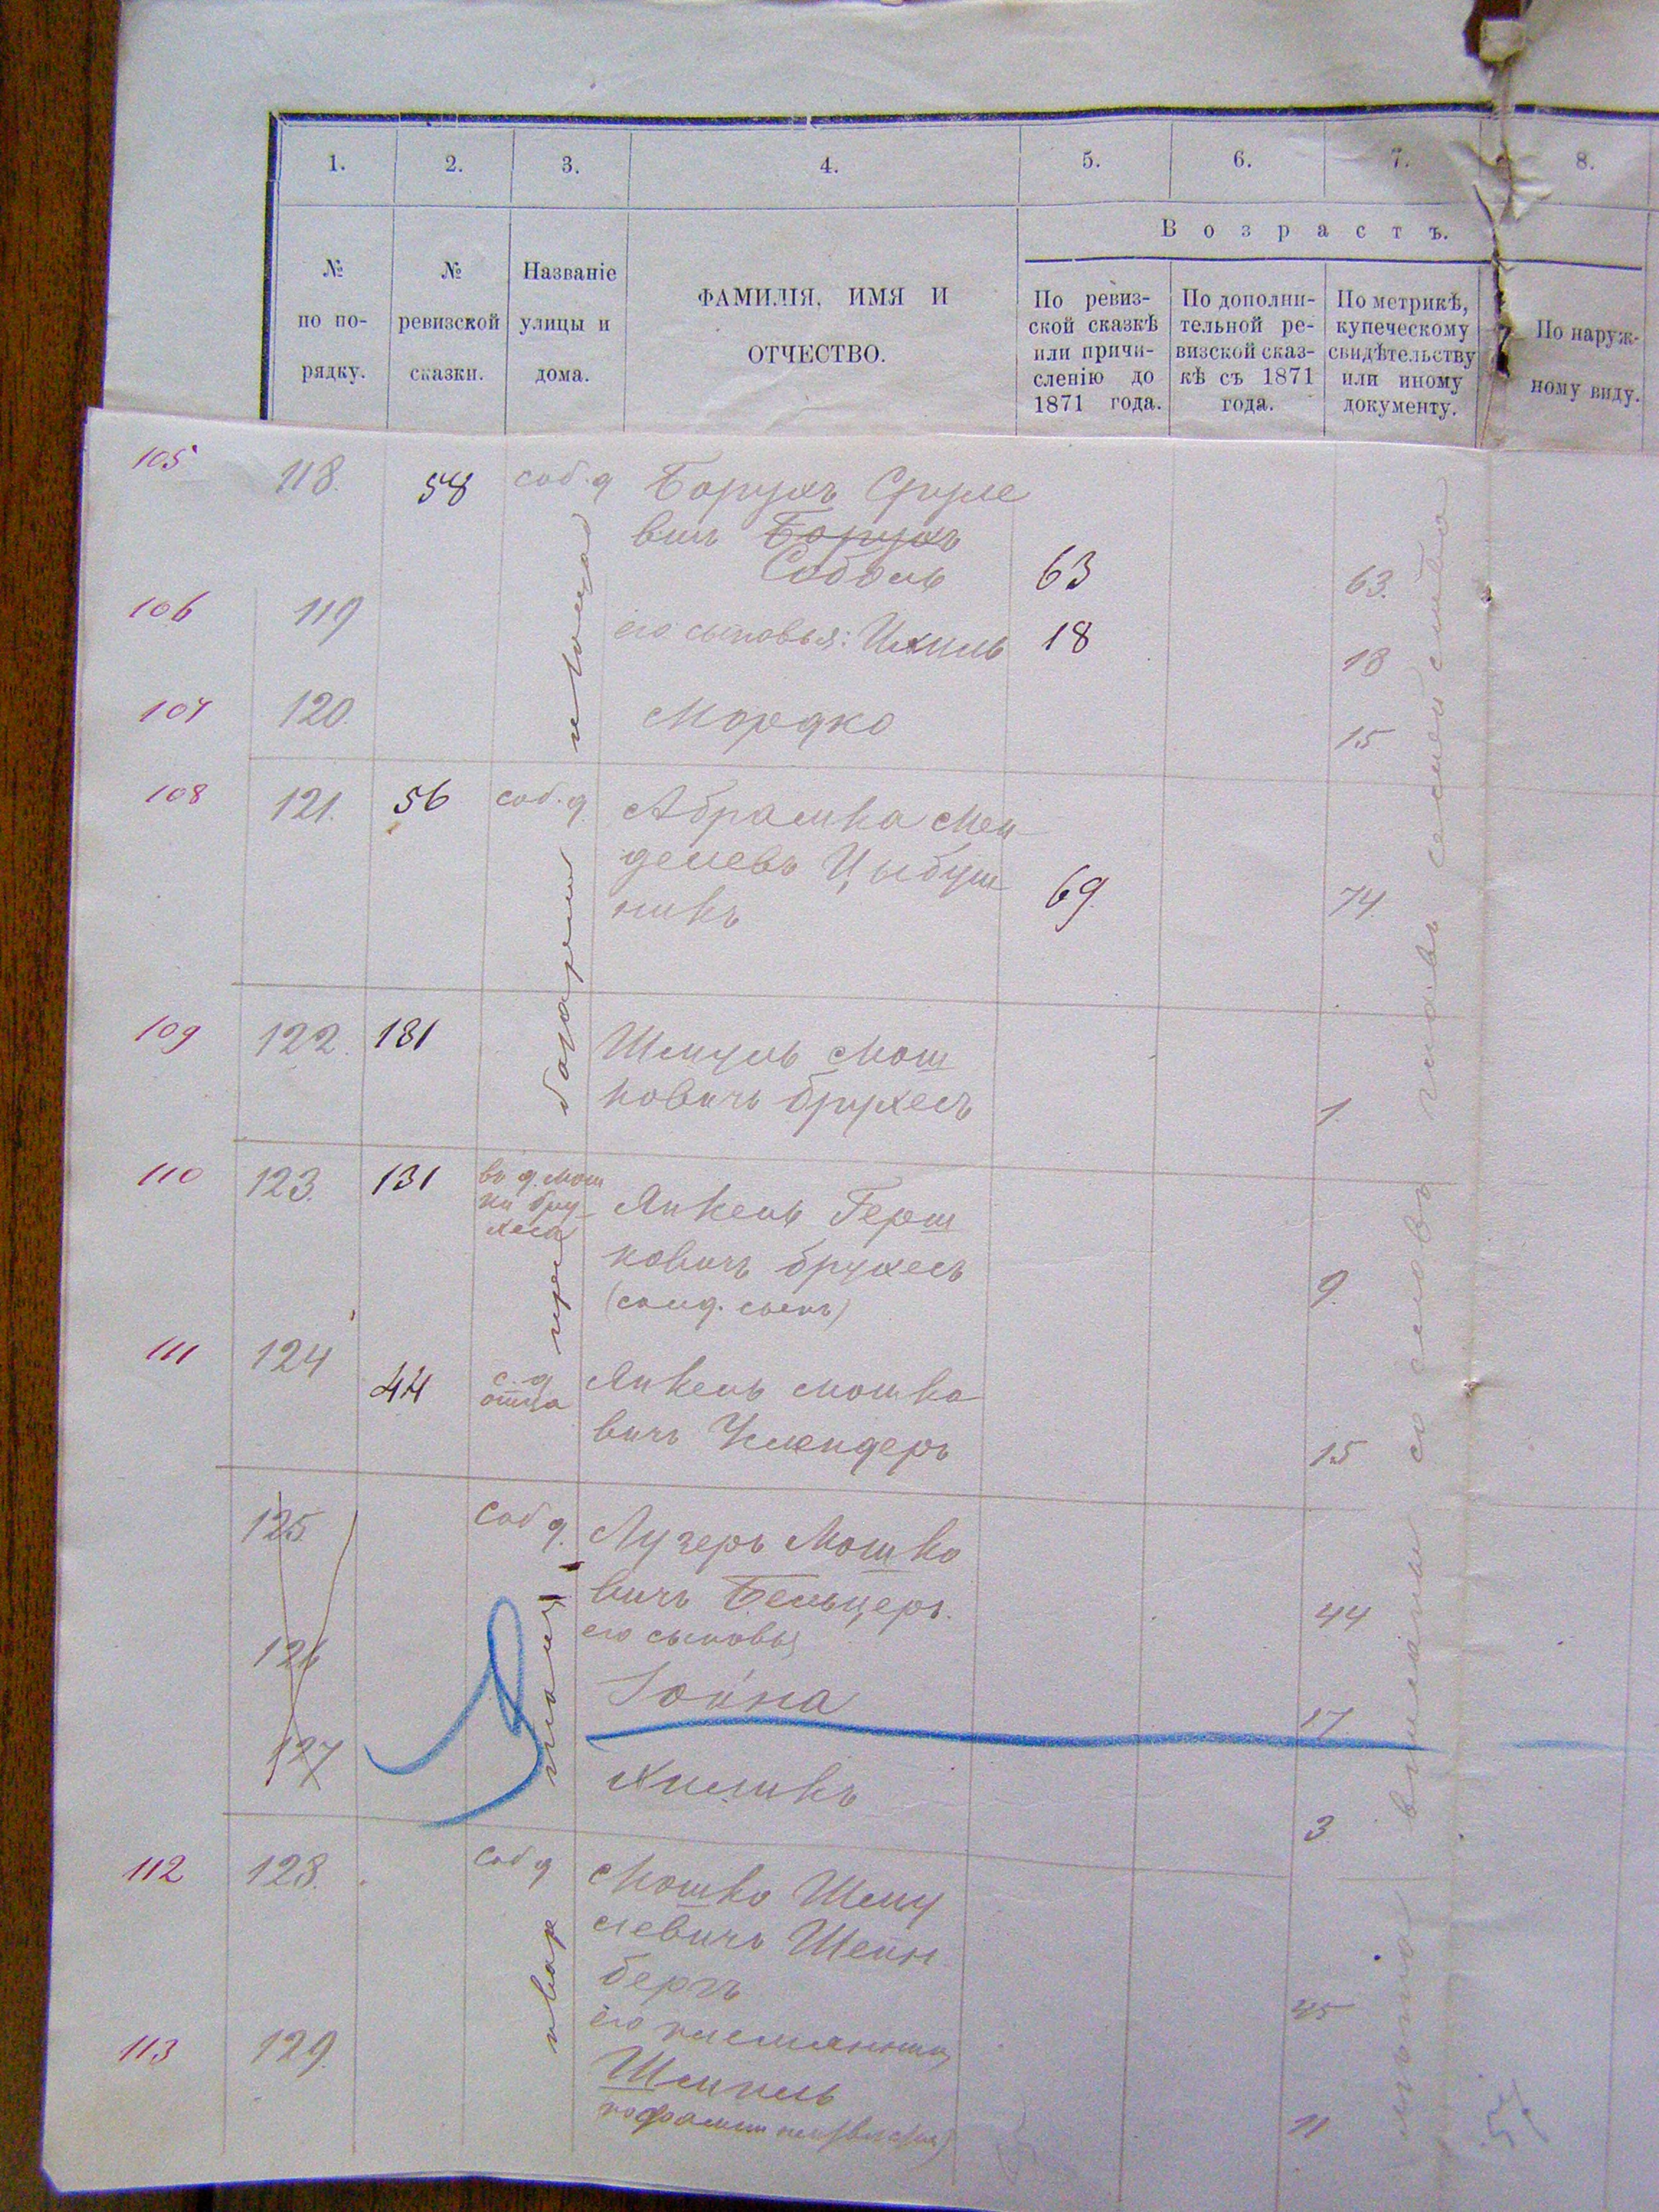 1. 2. 3. 4. 5. 6. 7. 8.
Возрастъ.
№ по по-рядку.
№ ревизской сказки.
Названіе улицы и дома.
ФАМИЛІЯ, ИМЯ И ОТЧЕСТВО.
По ревиз-ской сказкѣ или причи-сленію до 1871 года.
По дополни-тельной ре-визской сказ-кѣ съ 1871 года.
По метрикѣ, купеческому свидѣтельству или иному документу.
По наруж-ному виду.
105 118. 58 соб. д Борухъ Сруле
вичъ Борухъ
Соболь 63 63.
106 119 его сыновья: Ихиль 18 18
107 120. Мордко 15
108 121. 56 соб. д Абрамка Мен
делевъ Цыбуль
никъ 69. 74.
109 122. 181 Шмуль Мош
ковичъ Брухесъ 1.
110 123. 131 въ д. Мош
ки Бру-
хеса
Янкель Герш
ковичъ Брухесъ 9.
(солд. сынъ)
111 124 44 с. д
отца
Янкель Мошко
вичъ 15
125. Соб д. Лузеръ Мошко
вичъ Бельцеръ. 44
его сыновья
126 Іойна 17.
127 Хилыкъ 3
112 128. Соб д Мошко Шму
левичъ Шейн
бергъ 45
его племянникъ
113 129. Шмиль 11